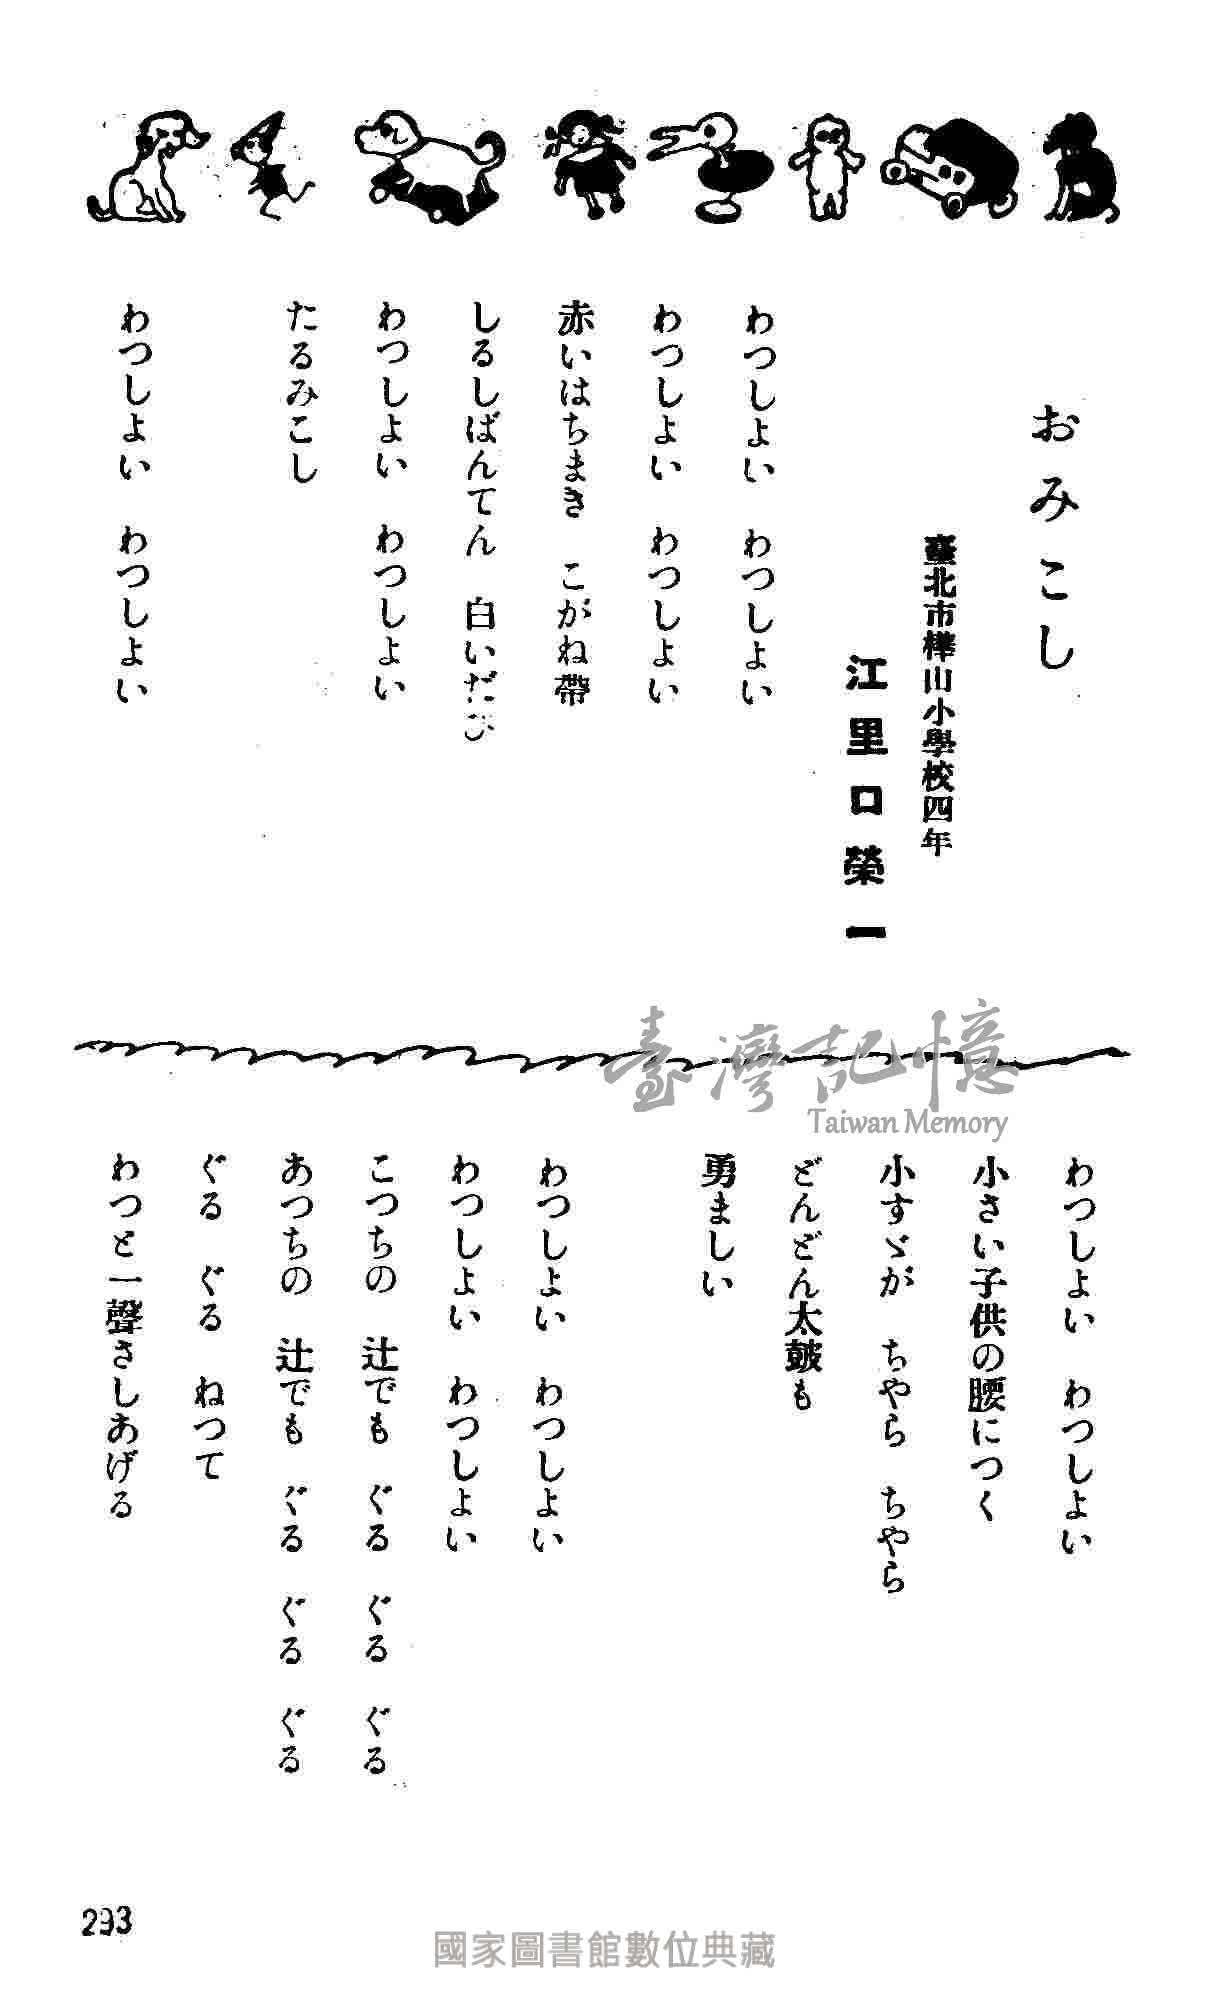 おみこし
臺北市樺山小學校四年
江里口榮一
わつしよい　わつしよい
わつしよい　わつしよい
赤いはちまき　こがね帶
しるしばんてん　白いだび
わつしよい　わつしよい
たるみこし
わつしよい　わつしよい
わつしよい　わつしよい
小さい子供の腰につく
小すゞが　ちやら　ちやら
どんどん太皷も
勇ましい
わつしよい　わつしよい
わつしよい　わつしよい
こつちの　辻でも　ぐる　ぐる　ぐる
あつちの　辻でも　ぐる　ぐる　ぐる
ぐる　ぐる　ねつて
わつと一聲さしあげる
臺灣記憶
Taiwan Memory
293
國家圖書館數位典藏